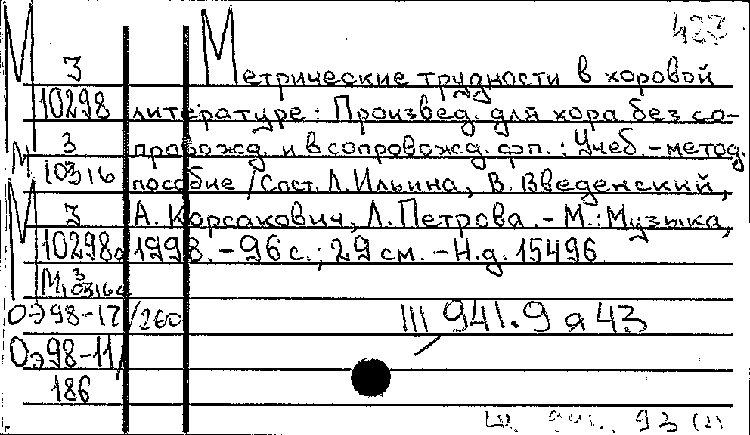 423
М 3 Метрические трудности в хоровой
10298 литературе: Произвед. для хора без со-
М 3 провожд. и в сопровожд. фп.: Учеб.-метод.
10316 пособие / Сост. Л. Ильина, В. Введенский,
М 3 А. Корсакович, Л. Петрова. - М.: Музыка,
10298а 1998. - 96 с.; 29 см. - Н.д. 15496
М 3
10316а
Оэ98-17/260 Ш 941.9 я 43
Оэ98-11/
186